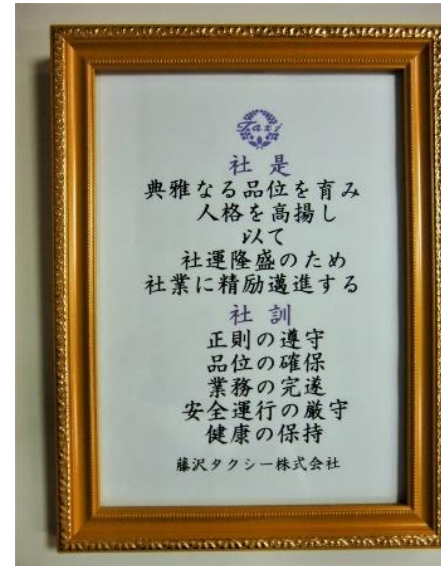 Taxi
社是
典雅なる品位を育み
人格を高揚し
以て
社運隆盛のため
社業に精励邁進する
社訓
正則の遵守
品位の確保
業務の完遂
安全運行の厳守
健康の保持
藤沢タクシー株式会社